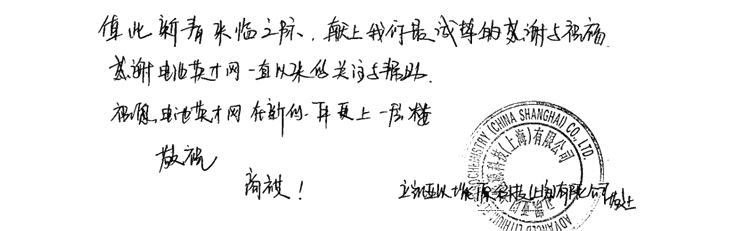 值此新春来临之际，献上我们最诚挚的感谢与祝福
感谢电池英才网一直以来的关注与帮助.
祝愿电池英才网在新的一年更上一层楼
敬祝
商祺！
立凯亚以士能源科技(上海)有限公司
ADVANCED LITHIUM
OCHEMISTRY (CHINA SHANGHAI) CO., LTD.
源科技(上海)有限公司